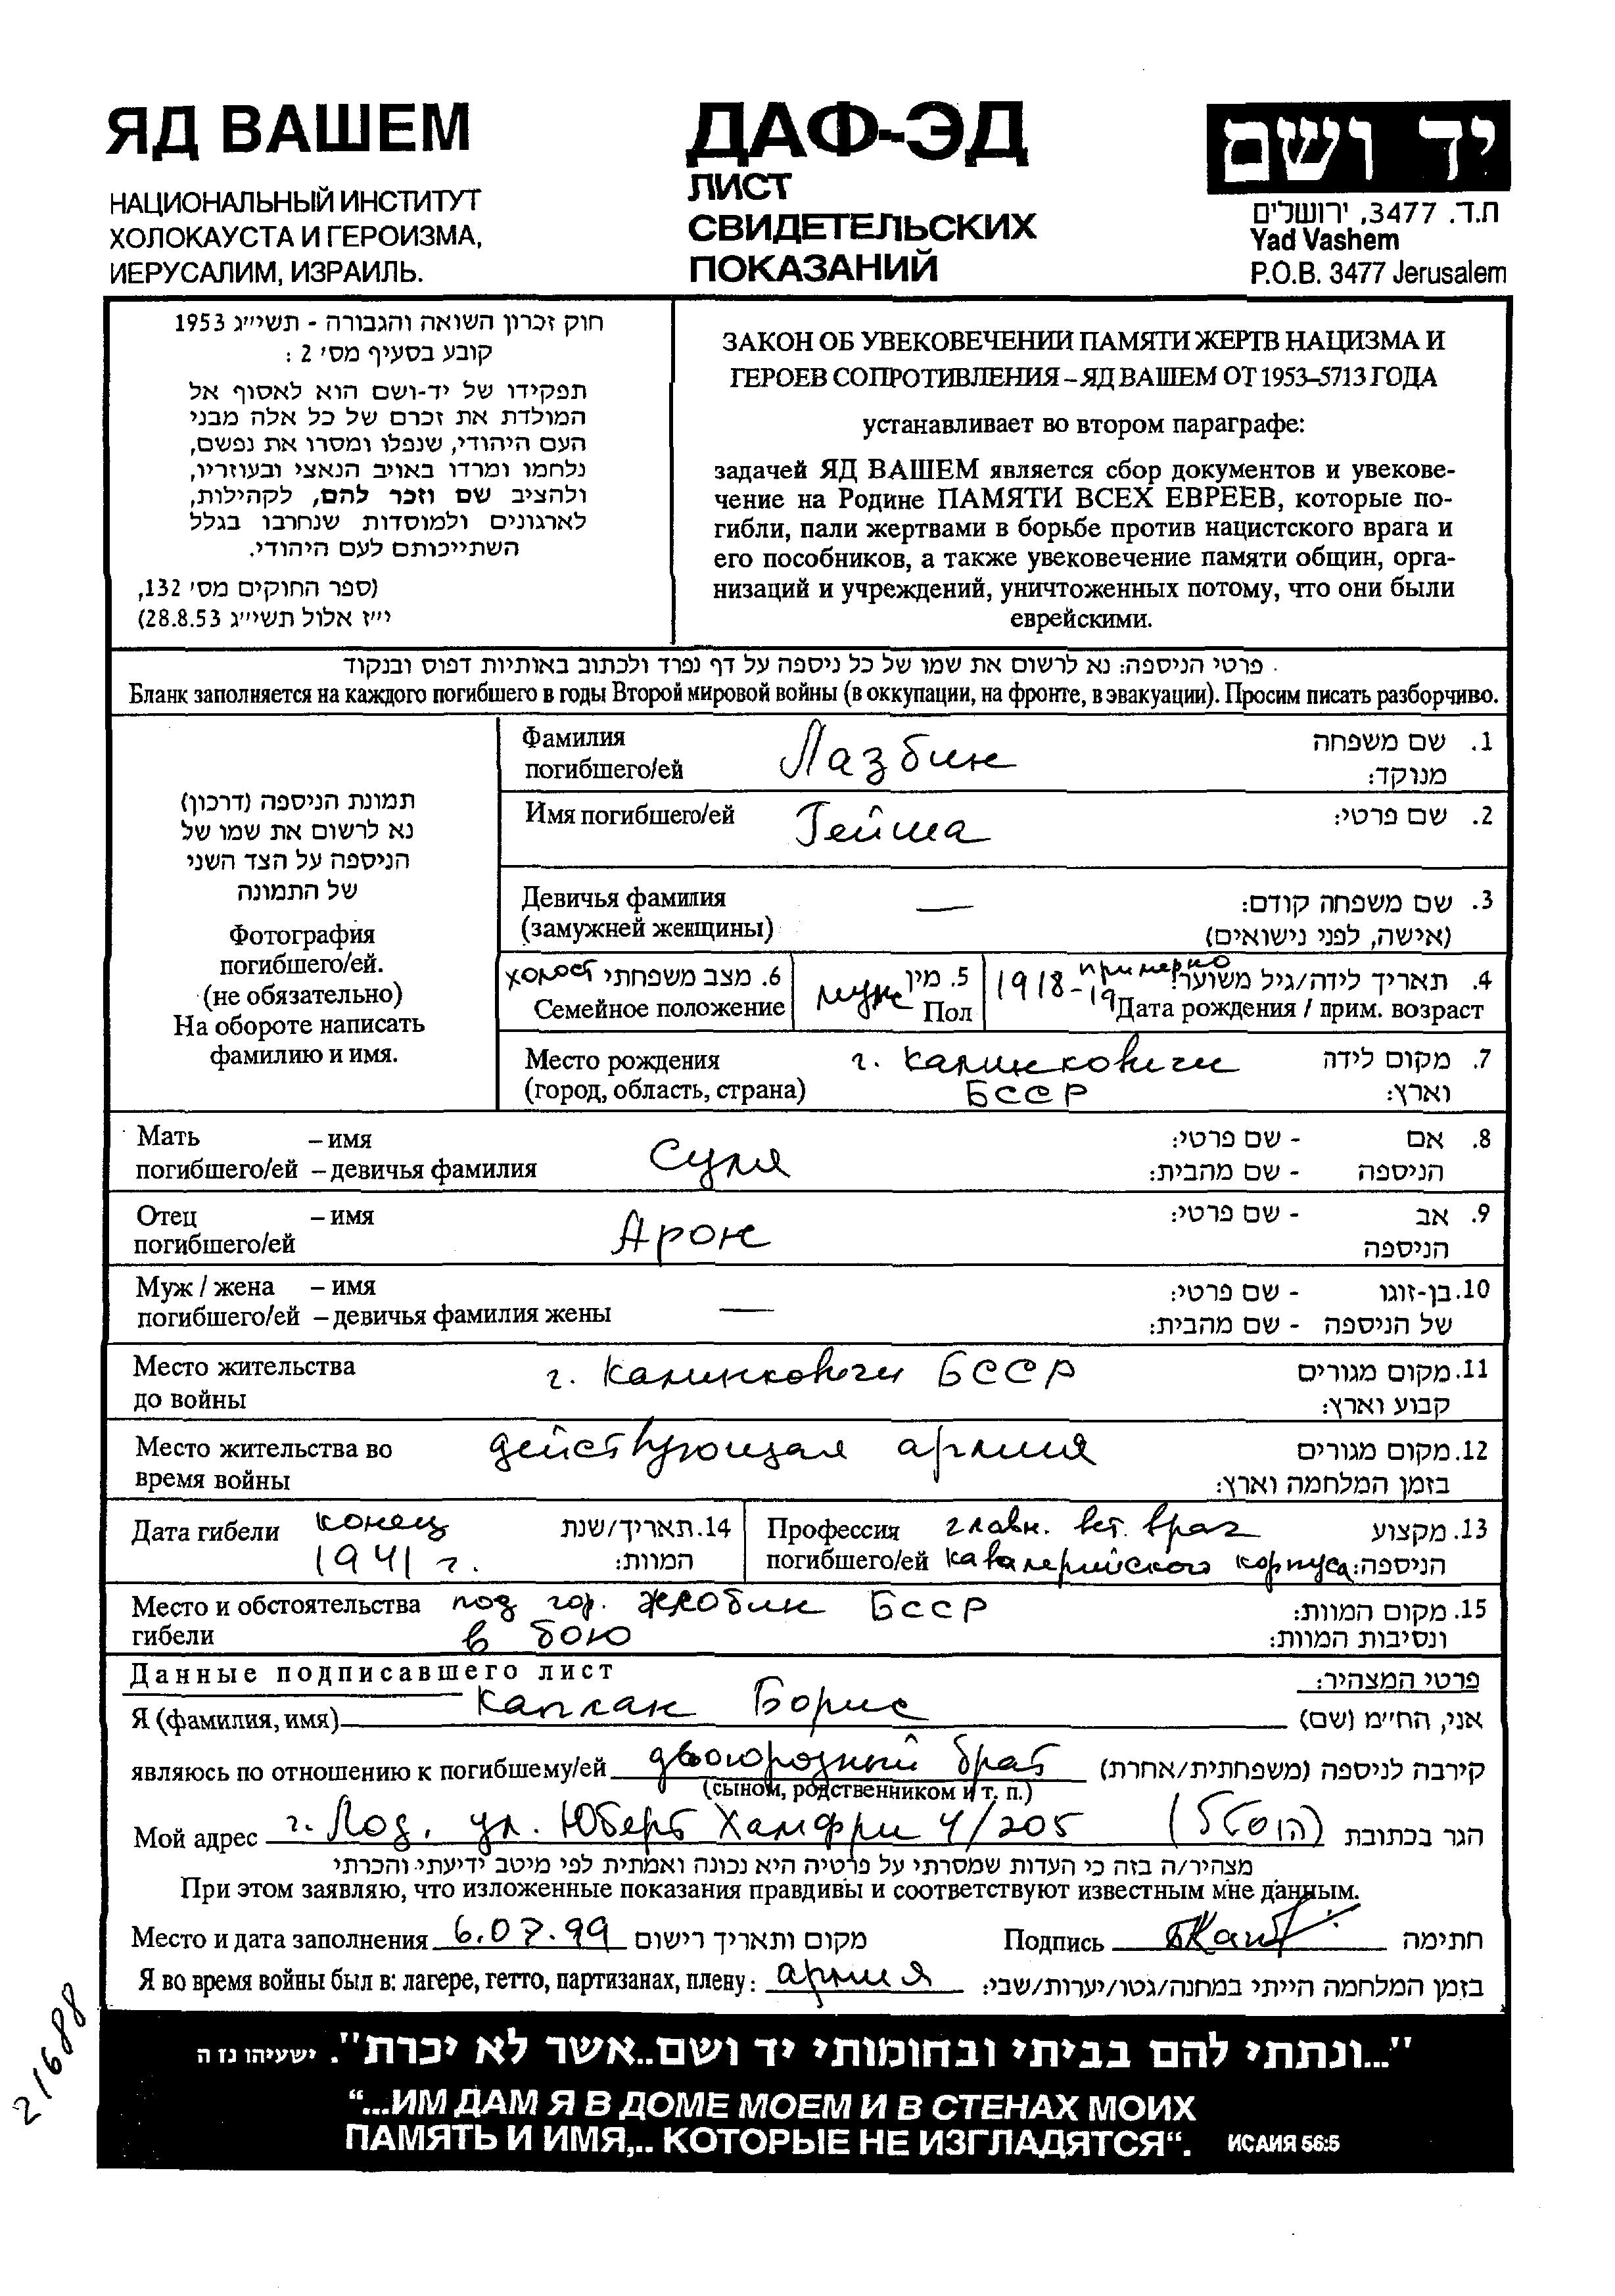 ЯД ВАШЕМ
НАЦИОНАЛЬНЫЙ ИНСТИТУТ
ХОЛОКАУСТА И ГЕРОИЗМА,
ИЕРУСАЛИМ, ИЗРАИЛЬ.
ДАФ-ЭД
ЛИСТ
СВИДЕТЕЛЬСКИХ
ПОКАЗАНИЙ
יד ושם
ת.ד. 3477, ירושלים
Yad Vashem
P.O.B. 3477 Jerusalem
חוק זכרון השואה והגבורה - תשי״ג 1953
קובע בסעיף מס׳ 2 :
תפקידו של יד-ושם הוא לאסוף אל
המולדת את זכרם של כל אלה מבני
העם היהודי, שנפלו ומסרו את נפשם,
נלחמו ומרדו באויב הנאצי ובעוזריו,
ולהציב שם וזכר להם, לקהילות,
לארגונים ולמוסדות שנחרבו בגלל
השתייכותם לעם היהודי.
(ספר החוקים מס׳ 132,
י״ז אלול תשי״ג 28.8.53)
ЗАКОН ОБ УВЕКОВЕЧЕНИИ ПАМЯТИ ЖЕРТВ НАЦИЗМА И
ГЕРОЕВ СОПРОТИВЛЕНИЯ – ЯД ВАШЕМ ОТ 1953–5713 ГОДА
устанавливает во втором параграфе:
задачей ЯД ВАШЕМ является сбор документов и увекове-
чение на Родине ПАМЯТИ ВСЕХ ЕВРЕЕВ, которые по-
гибли, пали жертвами в борьбе против нацистского врага и
его пособников, а также увековечение памяти общин, орга-
низаций и учреждений, уничтоженных потому, что они были
еврейскими.
פרטי הניספה: נא לרשום את שמו של כל ניספה על דף נפרד ולכתוב באותיות דפוס ובנקוד
Бланк заполняется на каждого погибшего в годы Второй мировой войны (в оккупации, на фронте, в эвакуации). Просим писать разборчиво.
תמונת הניספה (דרכון)
נא לרשום את שמו של
הניספה על הצד השני
של התמונה
Фотография
погибшего/ей.
(не обязательно)
На обороте написать
фамилию и имя.
Фамилия Лазбин 1. שם משפחה
погибшего/ей מנוקד:
Имя погибшего/ей Гейша 2. שם פרטי:
Девичья фамилия — 3. שם משפחה קודם:
(замужней женщины) (אישה, לפני נישואים)
холост 6. מצב משפחתי
Семейное положение
муж 5. מין
Пол
1918-19 примерно 4. תאריך לידה/גיל משוער:
Дата рождения / прим. возраст
Место рождения г. Калинковичи 7. מקום לידה
(город, область, страна) БССР וארץ:
Мать – имя Суля 8. אם - שם פרטי:
погибшего/ей – девичья фамилия הניספה - שם מהבית:
Отец – имя Арон 9. אב - שם פרטי:
погибшего/ей הניספה
Муж / жена – имя 10. בן-זוגו - שם פרטי:
погибшего/ей – девичья фамилия жены — של הניספה - שם מהבית:
Место жительства г. Калинковичи БССР 11. מקום מגורים
до войны קבוע וארץ:
Место жительства во действующая армия 12. מקום מגורים
время войны בזמן המלחמה וארץ:
Дата гибели конец 14. תאריך/שנת
1941 г. המוות:
Профессия главн. вет. врач 13. מקצוע
погибшего/ей кавалерийского корпуса הניספה:
Место и обстоятельства под гор. Жлобин БССР 15. מקום המוות:
гибели в бою ונסיבות המוות:
Данные подписавшего лист פרטי המצהיר:
Я (фамилия, имя) Каплан Борис אני, הח״מ (שם)
являюсь по отношению к погибшему/ей двоюродный брат קירבה לניספה (משפחתית/אחרת)
(сыном, родственником и т. п.)
Мой адрес г. Лод, ул. Юберт Хамфри 4/205 (הוסטל) הגר בכתובת
מצהיר/ה בזה כי העדות שמסרתי על פרטיה היא נכונה ואמתית לפי מיטב ידיעתי והכרתי
При этом заявляю, что изложенные показания правдивы и соответствуют известным мне данным.
Место и дата заполнения 6.07.99 מקום ותאריך רישום Подпись חתימה
Я во время войны был в: лагере, гетто, партизанах, плену: армия בזמן המלחמה הייתי במחנה/גטו/יערות/שבי:
21688
"...ונתתי להם בביתי ובחומותי יד ושם..אשר לא יכרת". ישעיהו נז ה
“...ИМ ДАМ Я В ДОМЕ МОЕМ И В СТЕНАХ МОИХ
ПАМЯТЬ И ИМЯ,.. КОТОРЫЕ НЕ ИЗГЛАДЯТСЯ“. ИСАИЯ 56:5